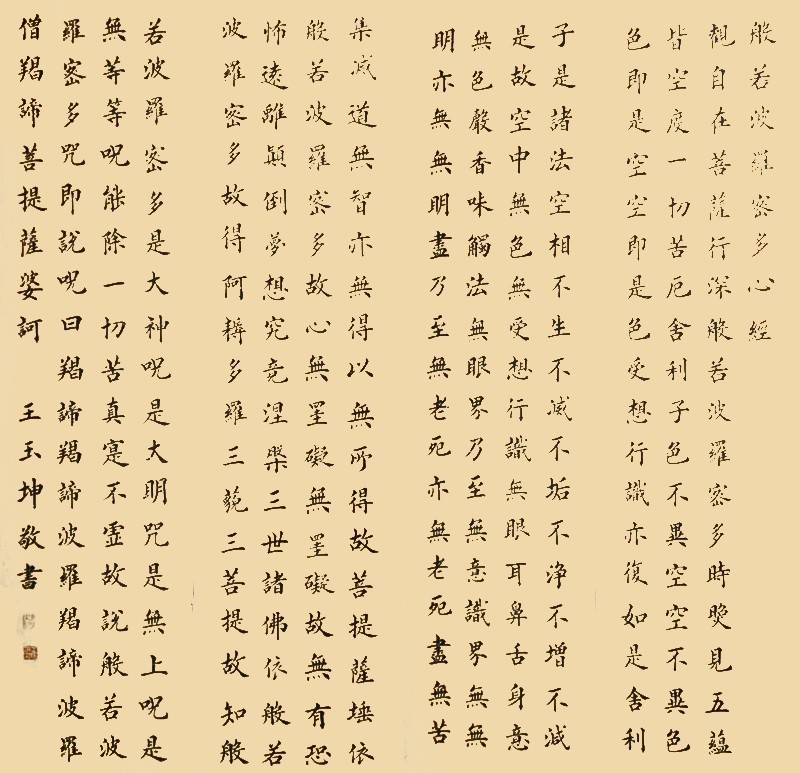 般若波羅密多心經
觀自在菩薩行深般若波羅密多時照見五蘊
皆空度一切苦厄舍利子色不異空空不異色
色即是空空即是色受想行識亦復如是舍利
子是諸法空相不生不滅不垢不净不增不減
是故空中無色無受想行識無眼耳鼻舌身意
無色聲香味觸法無眼界乃至無意識界無無
明亦無無明盡乃至無老死亦無老死盡無苦
集滅道無智亦無得以無所得故菩提薩埵依
般若波羅密多故心無罣礙無罣礙故無有恐
怖遠離顛倒夢想究竟涅槃三世諸佛依般若
波羅密多故得阿耨多羅三藐三菩提故知般
若波羅密多是大神呪是大明咒是無上呪是
無等等呪能除一切苦真寔不虛故說般若波
羅密多咒即說呪曰羯諦羯諦波羅羯諦波羅
僧羯諦菩提薩婆訶 王玉坤敬書